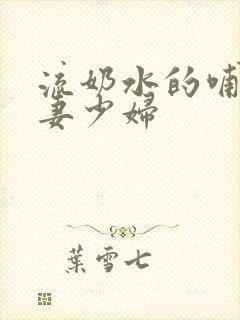 流奶水的哺
妻少婦
葉雪七